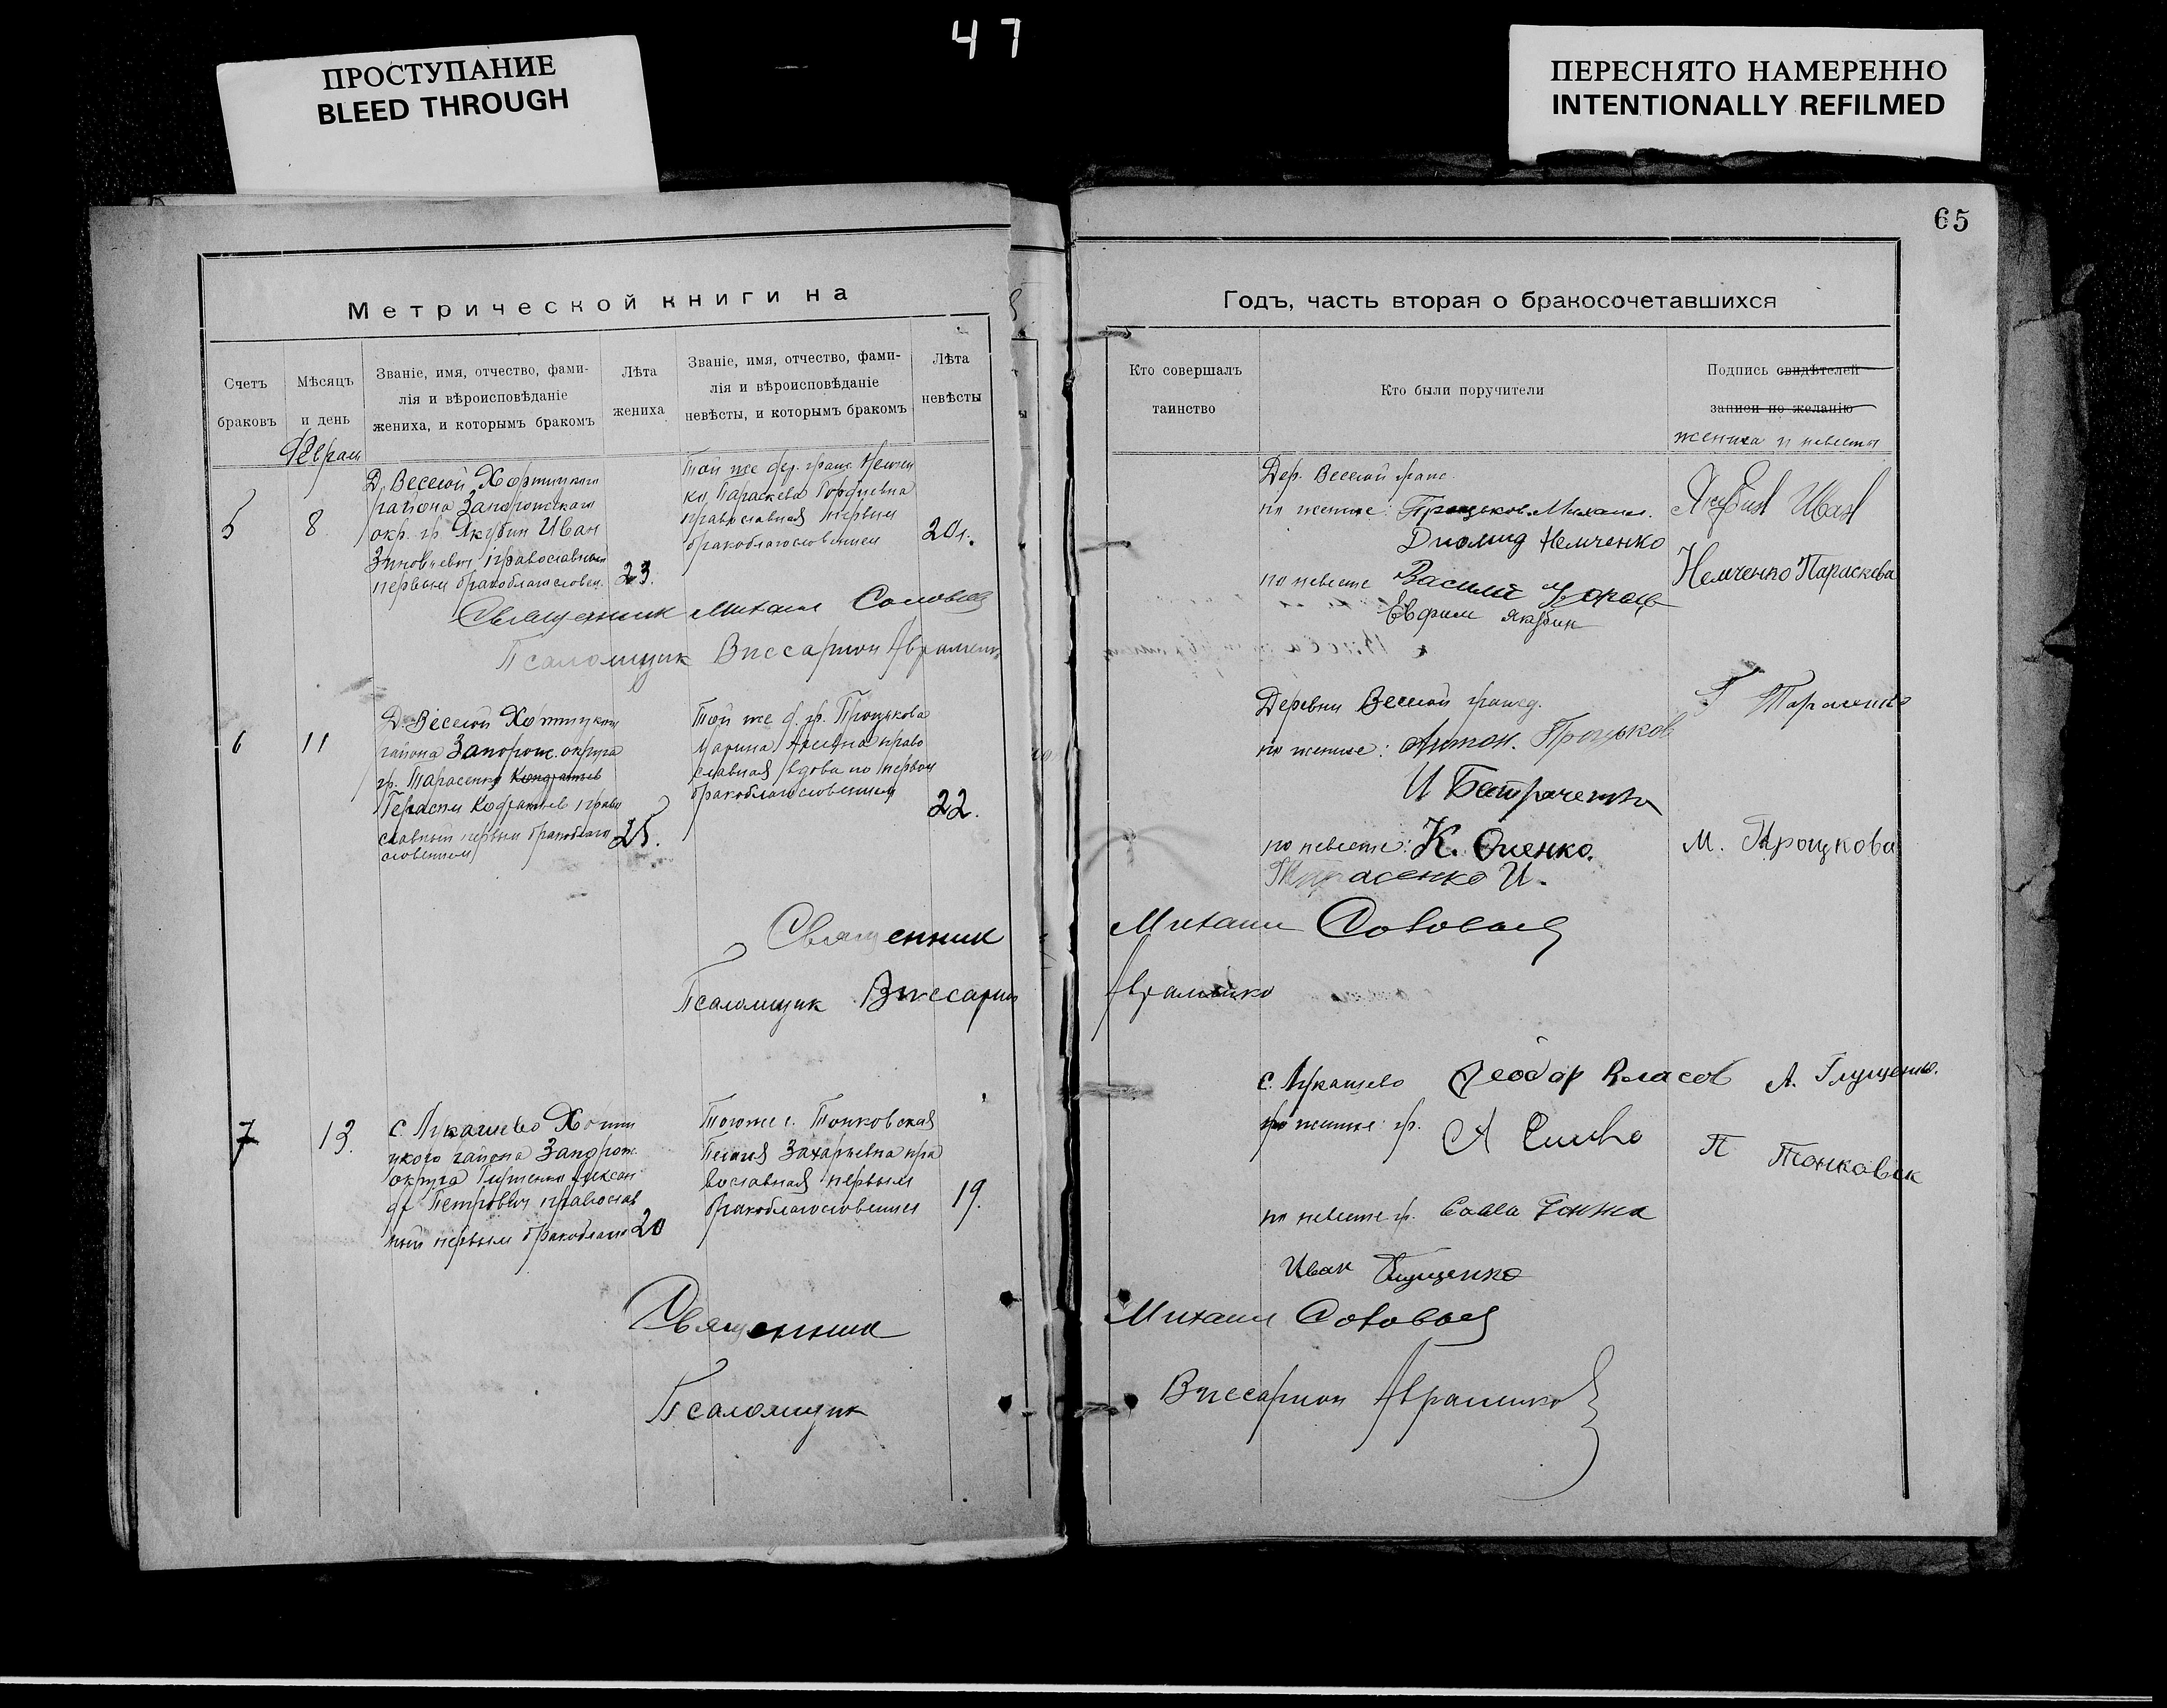 47
ПРОСТУПАНИЕ
BLEED THROUGH
ПЕРЕСНЯТО НАМЕРЕННО
INTENTIONALLY REFILMED
65
Метрической книги на
Счетъ браковъ
Мѣсяцъ и день
Званіе, имя, отчество, фами-
лія и вѣроисповѣданіе
жениха, и которымъ бракомъ
Лѣта жениха
Званіе, имя, отчество, фами-
лія и вѣроисповѣданіе
невѣсты, и которымъ бракомъ
Лѣта невѣсты
5
8
Д. Веселой Хортицкого
района Запорожского
окр. гр Якубин Иван
Зиновиевич православный
первым бракоблагословен.
23.
Той же дер. граж. Немчен
ко Параскева Гордиевна
православная первым
бракоблагословением
20 л.
Священник Михаил Соловьев
Псаломщик Виссарион Авраменко
6
11
Д. Веселой Хортицкого
района Запорож. округа
гр. Тарасенко Кондратьев
Герасим Кодратьев право
славный первым бракоблаго
словением
25.
Той же д. гр. Процкова
Марина право
славная вдова по первом
бракоблагословением
22.
Священник
Псаломщик Виссарион
7
13.
с. Лукашево Хорти
цкого района Запорож
округа Глущенко Алексан
др Петрович православ
ный первым бракоблаго
20
Тогоже с. Тонковская
Пелагея Захарьевна пра
вославная первым
бракоблагословением
19.
Священник
Псаломщик
Годъ, часть вторая о бракосочетавшихся
Кто совершалъ
таинство
Кто были поручители
Подпись свидѣтелей
записи по желанію
жениха и невесты
Дер. Веселой граж.
по женихе: Процьков Михаил.
Диомид Немченко
по невесте Василий
Евфим Якубин
Якубин Иван
Немченко Параскева
Деревни Веселой гражд.
по женихе: Антон. Процьков
И Батраченко
по невесте: К. Оленко.
Тарасенко И.
Г Тарасенко
М. Троцкова
Михаил Соловьев
Авраменко
с. Лукашево Феодор Власов
по женихе гр.
по невесте гр. Савва
Иван Глущенко
А. Глущенко.
П Тонковск
Михаил Соловьев
Виссарион Авраменко